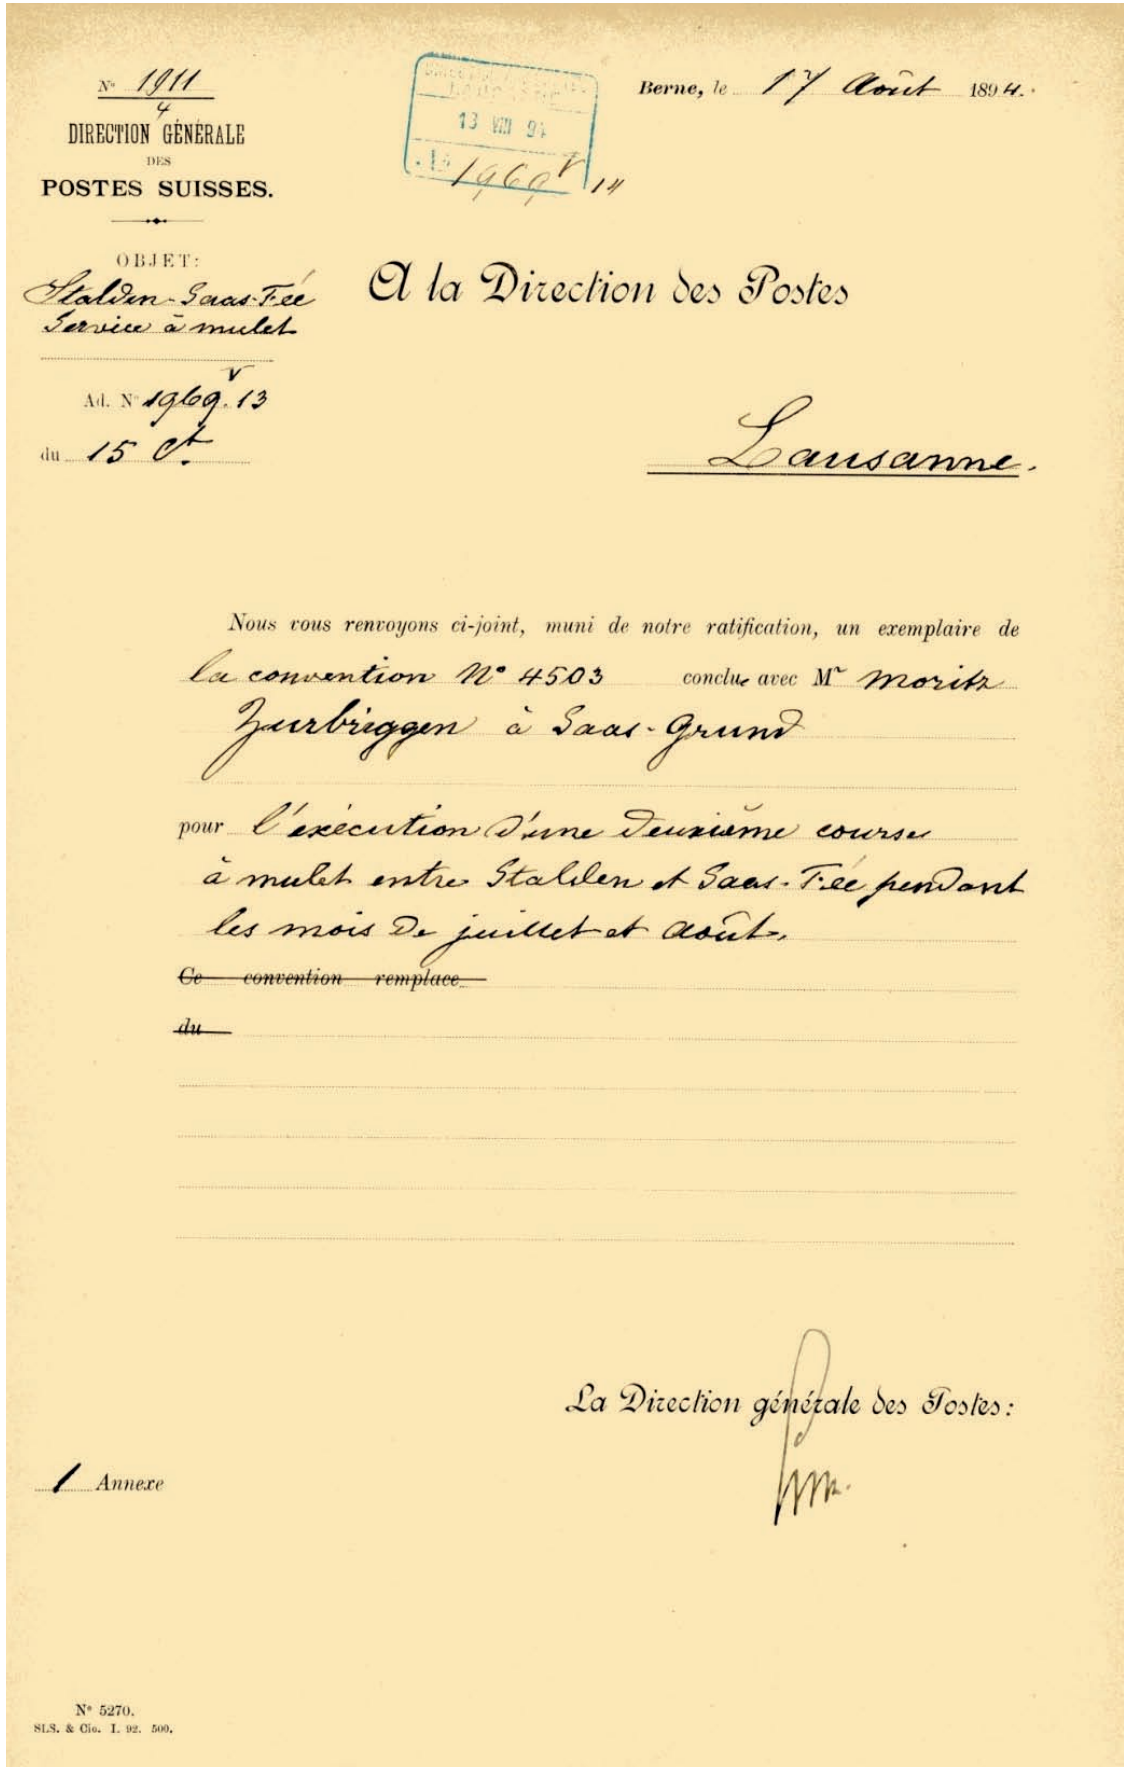 Nº 1911
4
DIRECTION GÉNÉRALE
DES
POSTES SUISSES.
13 VIII 94
1969 V 14
Berne, le 17 Août 1894.
OBJET:
Stalden-Saas-Fée
Service à mulet
Ad. Nº 1969 V. 13
du 15 Ct.
A la Direction des Postes
Lausanne.
Nous vous renvoyons ci-joint, muni de notre ratification, un exemplaire de
la convention Nº 4503 conclue avec Mr Moritz
Zurbriggen à Saas-Grund
pour l'exécution d'une deuxième course
à mulet entre Stalden et Saas-Fée pendant
les mois de juillet et août.
Ce convention remplace
du
La Direction générale des Postes:
1 Annexe
Nº 5270.
SLS. & Cie. I. 92. 500.